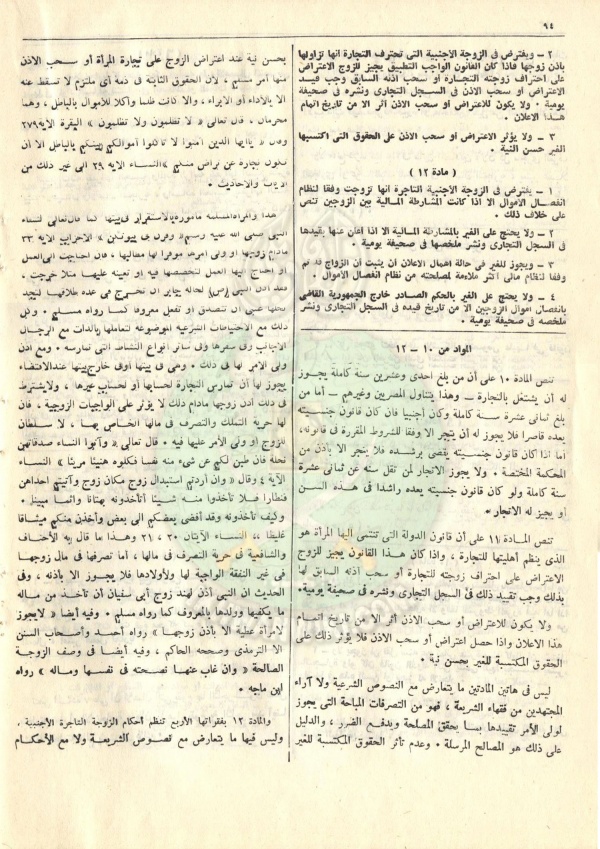 ٩٤
٢ - ويفترض فى الزوجة الأجنبية التى تحترف التجارة انها تزاولها
باذن زوجها فاذا كان القانون الواجب التطبيق يجيز للزوج الاعتراض
على احتراف زوجته التجارة أو سحب اذنه السابق وجب قيد
الاعتراض أو سحب الاذن فى السجل التجارى ونشره فى صحيفة
يومية ٠ ولا يكون للاعتراض أو سحب الاذن أثر الا من تاريخ اتمام
هذا الاعلان ٠
٣ - ولا يؤثر الاعتراض أو سحب الاذن على الحقوق التى اكتسبها
الغير حسن النية ٠
( مادة ١٢ )
١ - يفترض فى الزوجة الأجنبية التاجرة انها تزوجت وفقا لنظام
انفصال الأموال الا اذا كانت المشارطة المالية بين الزوجين تنص
على خلاف ذلك ٠
٢ - ولا يحتج على الغير بالمشارطة المالية الا اذا أعلن عنها بقيدها
فى السجل التجارى ونشر ملخصها فى صحيفة يومية ٠
٣ - ويجوز للغير فى حالة اهمال الاعلان أن يثبت أن الزواج قد تم
وفقا لنظام مالى أكثر ملاءمة لمصلحته من نظام انفصال الأموال ٠
٤ - ولا يحتج على الغير بالحكم الصادر خارج الجمهورية القاضى
بانفصال أموال الزوجين الا من تاريخ قيده فى السجل التجارى ونشر
ملخصه فى صحيفة يومية ٠
المواد من ١٠ - ١٢
تنص المادة ١٠ على أن من بلغ احدى وعشرين سنة كاملة يجوز
له أن يشتغل بالتجارة - وهذا يتناول المصريين وغيرهم - أما من
بلغ ثمانى عشرة سنة كاملة وكان أجنبيا فان كان قانون جنسيته
يعده قاصرا فلا يجوز له أن يتجر الا وفقا للشروط المقررة فى قانونه،
أما اذا كان قانون جنسيته يقضى برشده فلا يتجر الا باذن من
المحكمة المختصة ٠ ولا يجوز الاتجار لمن تقل سنه عن ثمانى عشرة
سنة كاملة ولو كان قانون جنسيته يعده راشدا فى هذه السن
أو يجيز له الاتجار ٠
تنص المادة ١١ على أن قانون الدولة التى تنتمى اليها المرأة هو
الذى ينظم أهليتها للتجارة ، واذا كان هذا القانون يجيز للزوج
الاعتراض على احتراف زوجته للتجارة أو سحب اذنه السابق لها
بذلك وجب تقييد ذلك فى السجل التجارى ونشره فى صحيفة يومية٠
ولا يكون للاعتراض أو سحب الاذن أثر الا من تاريخ اتمام
هذا الاعلان واذا حصل اعتراض أو سحب الاذن فلا يؤثر ذلك على
الحقوق المكتسبة للغير بحسن نية ٠
ليس فى هاتين المادتين ما يتعارض مع النصوص الشرعية ولا آراء
المجتهدين من فقهاء الشريعة ، فهو من التصرفات المباحة التى يجوز
لولى الأمر تقييدها بما يحقق المصلحة ويدفع الضرر ، والدليل
على ذلك هو المصالح المرسلة ٠ وعدم تأثر الحقوق المكتسبة للغير
بحسن نية عند اعتراض الزوج على تجارة المرأة أو سحب الاذن
منها أمر مسلم ، لأن الحقوق الثابتة فى ذمة أى ملتزم لا تسقط عنه
الا بالأداء أو الابراء ، والا كانت ظلما وأكلا للأموال بالباطل ، وهما
محرمان ، قال تعالى « لا تظلمون ولا تظلمون » البقرة الآية ٢٧٩
وقال « ياأيها الذين آمنوا لا تأكلوا أموالكم بينكم بالباطل الا أن
تكون تجارة عن تراض منكم » النساء الآية ٢٩ الى غير ذلك من
الآيات والأحاديث ٠
هذا والمرأة المسلمة مأمورة بالاستقرار فى بيتها كما قال تعالى لنساء
النبى صلى الله عليه وسلم « وقرن فى بيوتكن » الأحزاب الآية ٣٣
مادام زوجها أو ولى أمرها موفرا لها مطالبها ، فان احتاجت الى العمل
أو احتاج اليها العمل لتخصصها فيه أو تعينه عليها مثلا خرجت ،
فقد أذن النبى (ص) لخالة جابر أن تخرج فى عدة طلاقها لتجد
نخلها عسى أن تتصدق أو تفعل معروفا كما رواه مسلم ٠ وكل
ذلك مع الاحتياطات الشرعية الموضوعة لتعاملها بالذات مع الرجال
الأجانب وفى سفرها وفى سائر أنواع النشاط التى تمارسه ٠ ومع اذن
ولى الأمر لها فى ذلك ٠ وهى فى بيتها أو فى خارج بيتها عند الاقتضاء
يجوز لها أن تمارس التجارة لحسابها أو لحساب غيرها ، ولا يشترط
فى ذلك أذن زوجها مادام ذلك لا يؤثر على الواجبات الزوجية ، فان
لها حرية التملك والتصرف فى مالها الخاص بها ، لا سلطان
للزوج أو ولى الأمر عليها فيه ٠ قال تعالى « وآتوا النساء صدقاتهن
نحلة فان طبن لكم عن شىء منه نفسا فكلوه هنيئا مريئا » النساء
الآية ٤ وقال « وان أردتم استبدال زوج مكان زوج وآتيتم احداهن
قنطارا فلا تأخذوا منه شيئا أتأخذونه بهتانا واثما مبينا ٠
وكيف تأخذونه وقد أفضى بعضكم الى بعض وأخذن منكم ميثاقا
غليظا » النساء الآيتان ٢٠ ، ٢١ وهذا ما قال به الأحناف
والشافعية فى حرية التصرف فى مالها ، أما تصرفها فى مال زوجها
فى غير النفقة الواجبة لها ولأولادها فلا يجوز الا باذنه ، وفى
الحديث أن النبى أذن لهند زوج أبى سفيان أن تأخذ من ماله
ما يكفيها وولدها بالمعروف كما رواه مسلم ٠ وفيه أيضا « لا يجوز
لامرأة عطية الا بأذن زوجها » رواه أحمد وأصحاب السنن
الا الترمذى وصححه الحاكم ، وفيه أيضا فى وصف الزوجة
الصالحة « وان غاب عنها نصحته فى نفسها وماله » رواه
ابن ماجه ٠
والمادة ١٢ بفقراتها الأربع تنظم أحكام الزوجة التاجرة الأجنبية ٠
وليس فيها ما يتعارض مع نصوص الشريعة ولا مع الأحكام